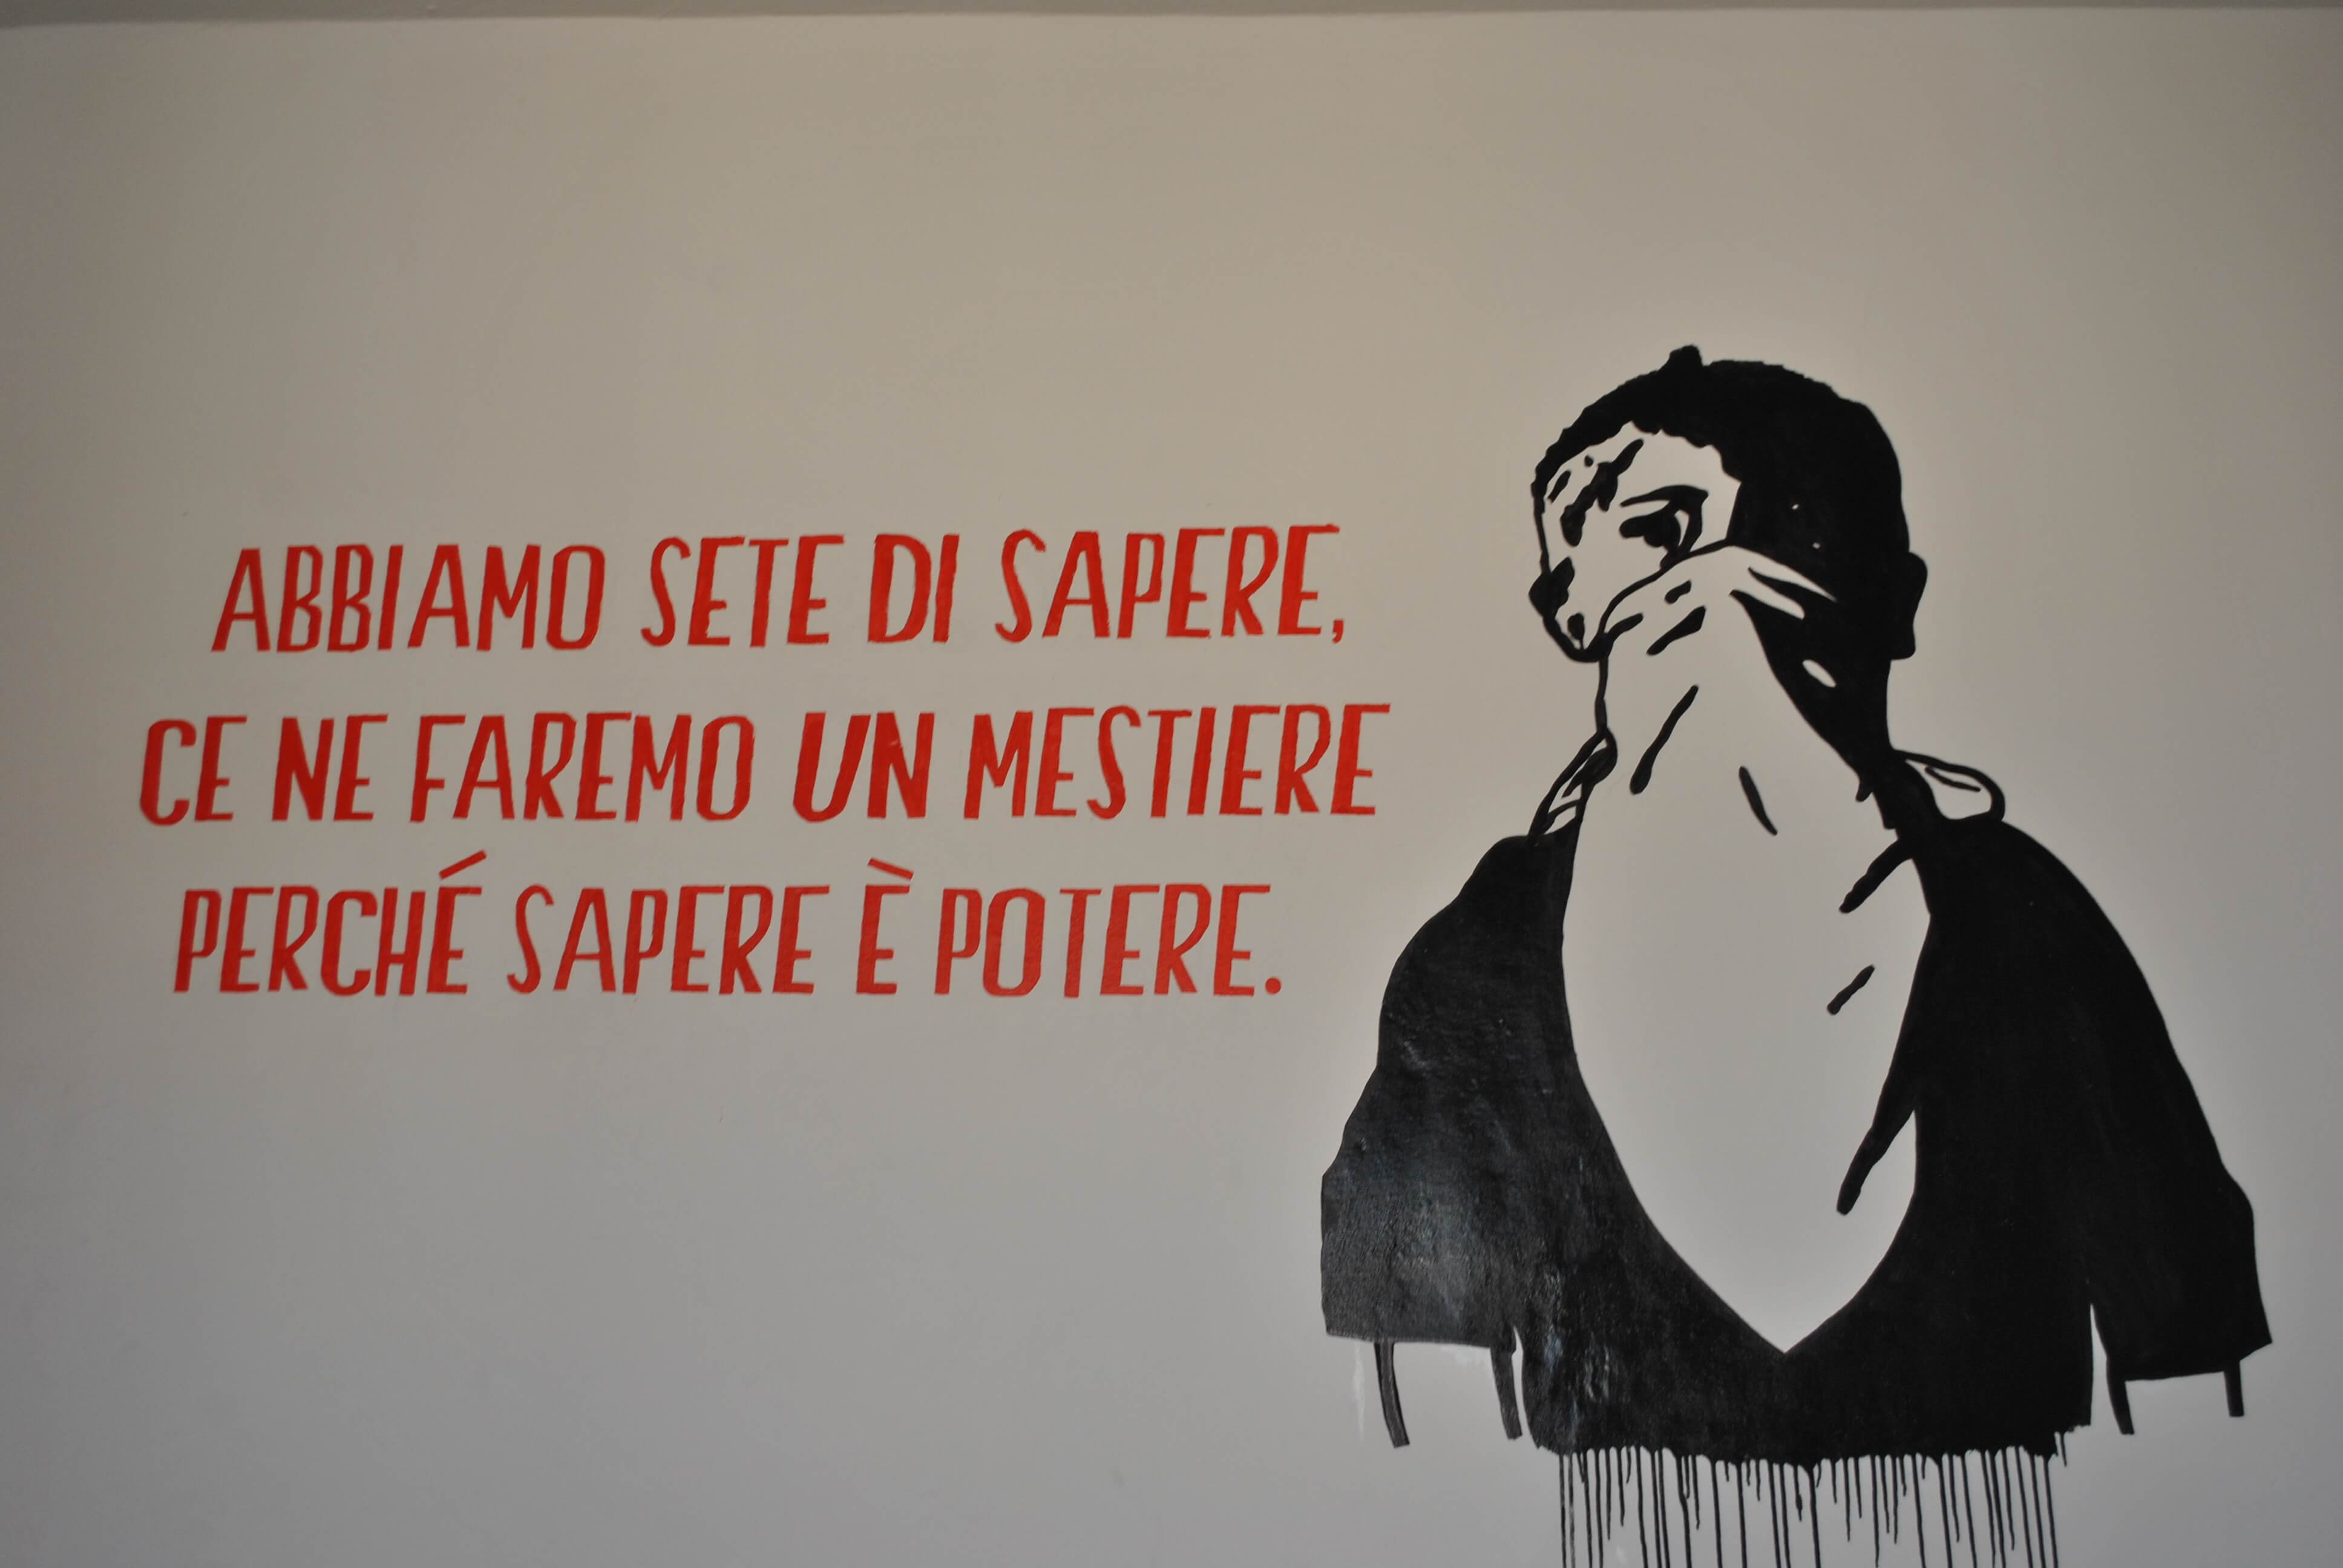 ABBIAMO SETE DI SAPERE,
CE NE FAREMO UN MESTIERE
PERCHÉ SAPERE È POTERE.